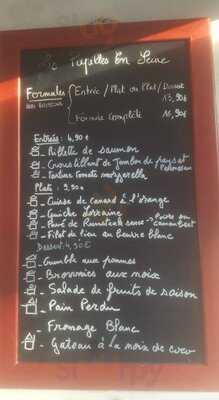 Papilles En Seine
Formules Entrée / Plat ou Plat / Dessert
13,90€
Formule Complète 16,90€
Entrées: 4,90 €
- Rillette de saumon
- Croustillant de Jambon de pays et
- Tartine Tomate mozzarella
Plats: 9,50€
- Cuisse de canard à l'orange
- Quiche Lorraine
- Pavé de Rumsteack sauce
camembert
- Filet de lieu au beurre blanc
Dessert: 4,50€
- Crumble aux pommes
- Brownnies aux noix
- Salade de fruits de saison
- Pain Perdu
- Fromage Blanc
- Gateau à la noix de coco